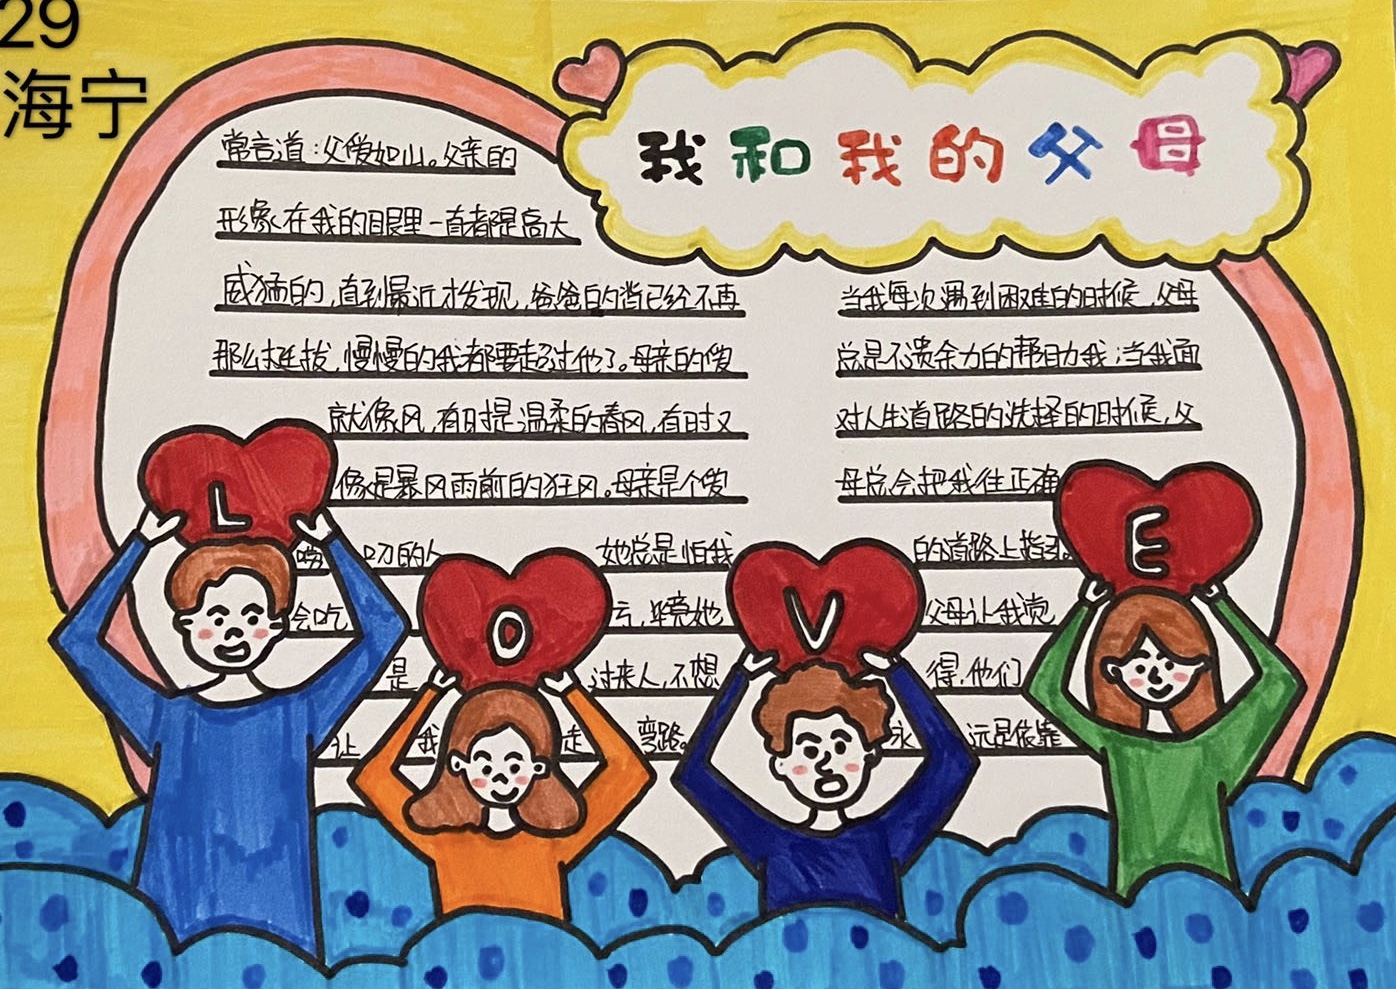 29
海宁
我和我的父母
常言道:父爱如山。父亲的
形象在我的眼里一直都是高大
威猛的,直到最近才发现,爸爸的背已经不再
那么挺拔,慢慢的我都要超过他了。母亲的爱
就像风,有时是温柔的春风,有时又
像是暴风雨前的狂风。母亲是个爱
唠叨的人 她总是怕我
会吃 亏,毕竟她
是 过来人,不想
让 我 走 弯路。
当我每次遇到困难的时候,父母
总是不遗余力的帮助我;当我面
对人生道路的选择的时候,父
母总会把我往正确
的道路上指引。
父母让我觉
得,他们
永 远是依靠
L
O
V
E